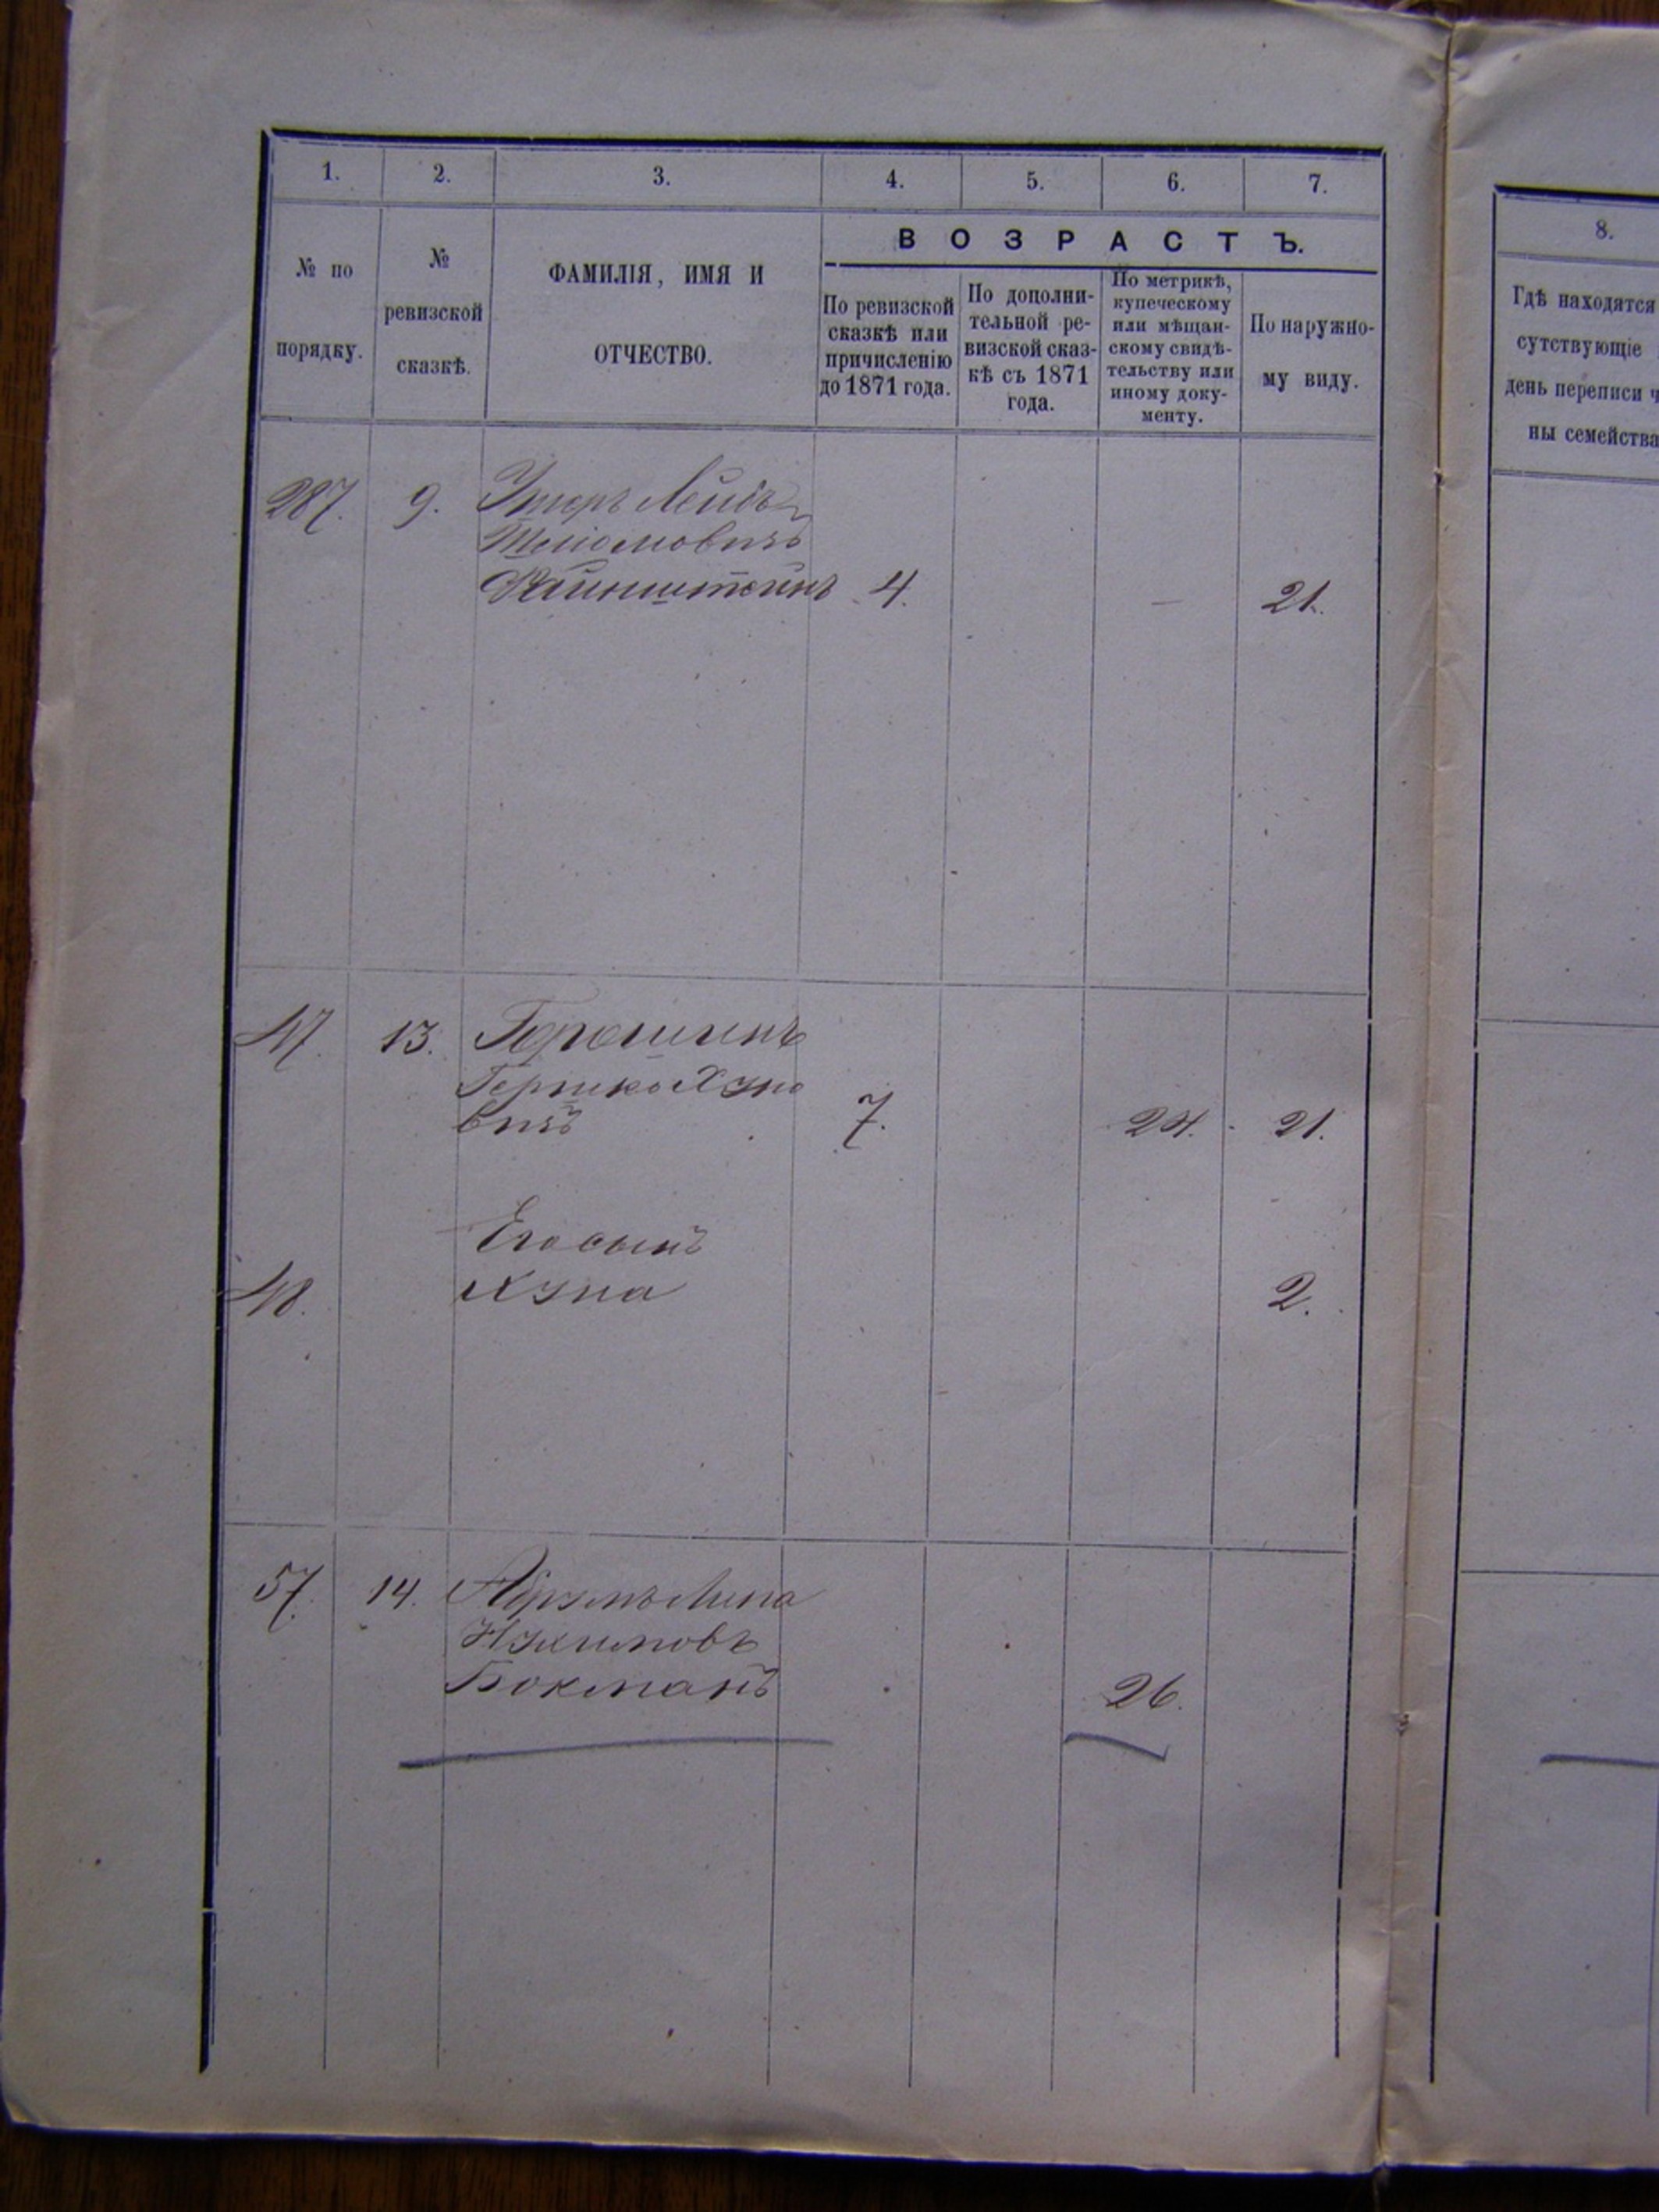 1. 2. 3. 4. 5. 6. 7.
ВОЗРАСТЪ.
№ по
порядку.
№
ревизской
сказкѣ.
ФАМИЛІЯ, ИМЯ И
ОТЧЕСТВО.
По ревизской
сказкѣ или
причисленію
до 1871 года.
По дополни-
тельной ре-
визской сказ-
кѣ съ 1871
года.
По метрикѣ,
купеческому
или мѣщан-
скому свидѣ-
тельству или
иному доку-
менту.
По наружно-
му виду.
287. 9. Лейбъ
Файнштейнъ 4. — 21.
47. 13.
Гершко Хуно
вичъ 7. 24. 21.
Его сынъ
48. Хуна 2.
57. 14.
Нухимовъ
Бокманъ 26.
8.
Гдѣ находятся
сутствующіе
день переписи ч
ны семейства